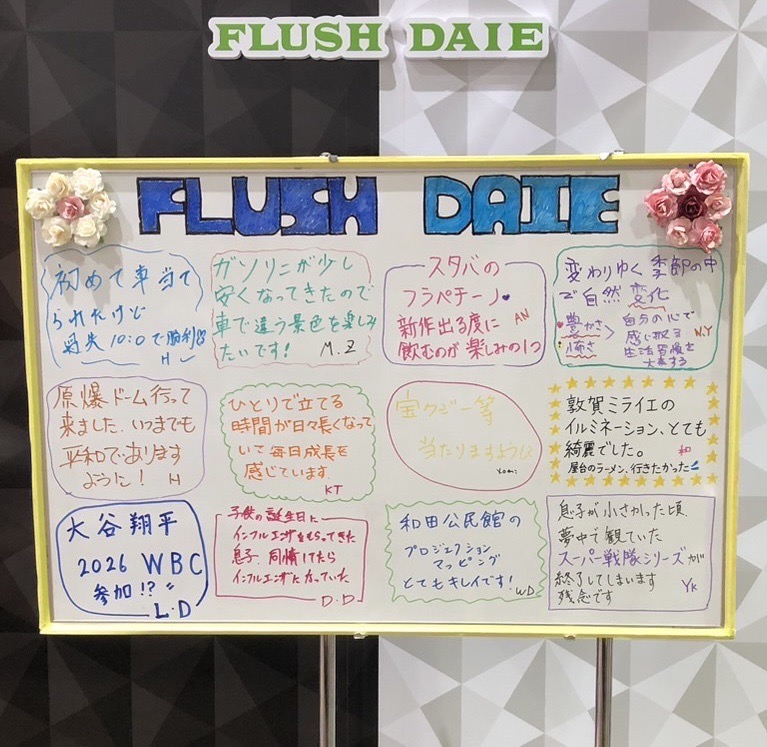 FLUSH DAIE
FLUSH DAIE
初めて車当て
られたけど
過失10:0で勝利
H
ガソリンが少し
安くなってきたので
車で違う景色を楽しみ
たいです!
M.Z
スタバの
フラペチーノ♥
新作出る度に
飲むのが楽しみの1つ
AN
変わりゆく季節の中
で自然変化
豊かさ
怖さ
>
自分の心で
感じ取る
生活習慣を
大事する
N.Y
原爆ドーム行って
来ました。いつまでも
平和であります
ように!
H
ひとりで立てる
時間が日々長くなって
いて毎日成長を
感じています.
KT
宝クジ一等
当たりますように
Yomi
敦賀ミライエの
イルミネーション、とても
綺麗でした。
和
屋台のラーメン、行きたかった
大谷翔平
2026 WBC
参加!?
L.D
子供の誕生日に
インフルエンザをもらってきた
息子。同情してたら
インフルエンザになっていた。
D.D
和田公民館の
プロジェクション
マッピング
とてもキレイです!
WD
息子が小さかった頃、
夢中で観ていた
スーパー戦隊シリーズが
終了してしまいます
残念です
YK